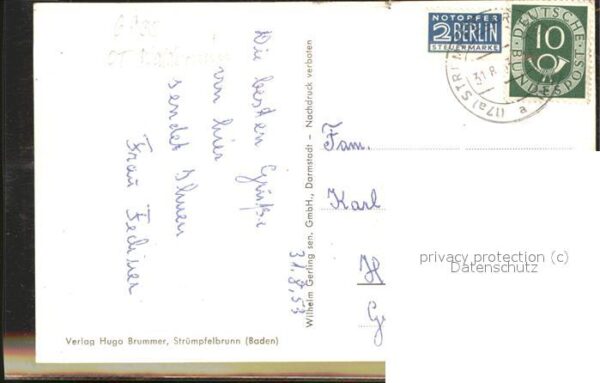 Die besten Grüße
von hier
sendet Ihnen
Frau
31.8.53
Verlag Hugo Brummer, Strümpfelbrunn (Baden)
Wilhelm Gerling sen. GmbH., Darmstadt - Nachdruck verboten
NOTOPFER
2 BERLIN
STEUERMARKE
DEUTSCHE
10
BUNDESPOST
(17a) STRÜM
31.8.
a
Fam.
Karl
H
privacy protection (c)
Datenschutz